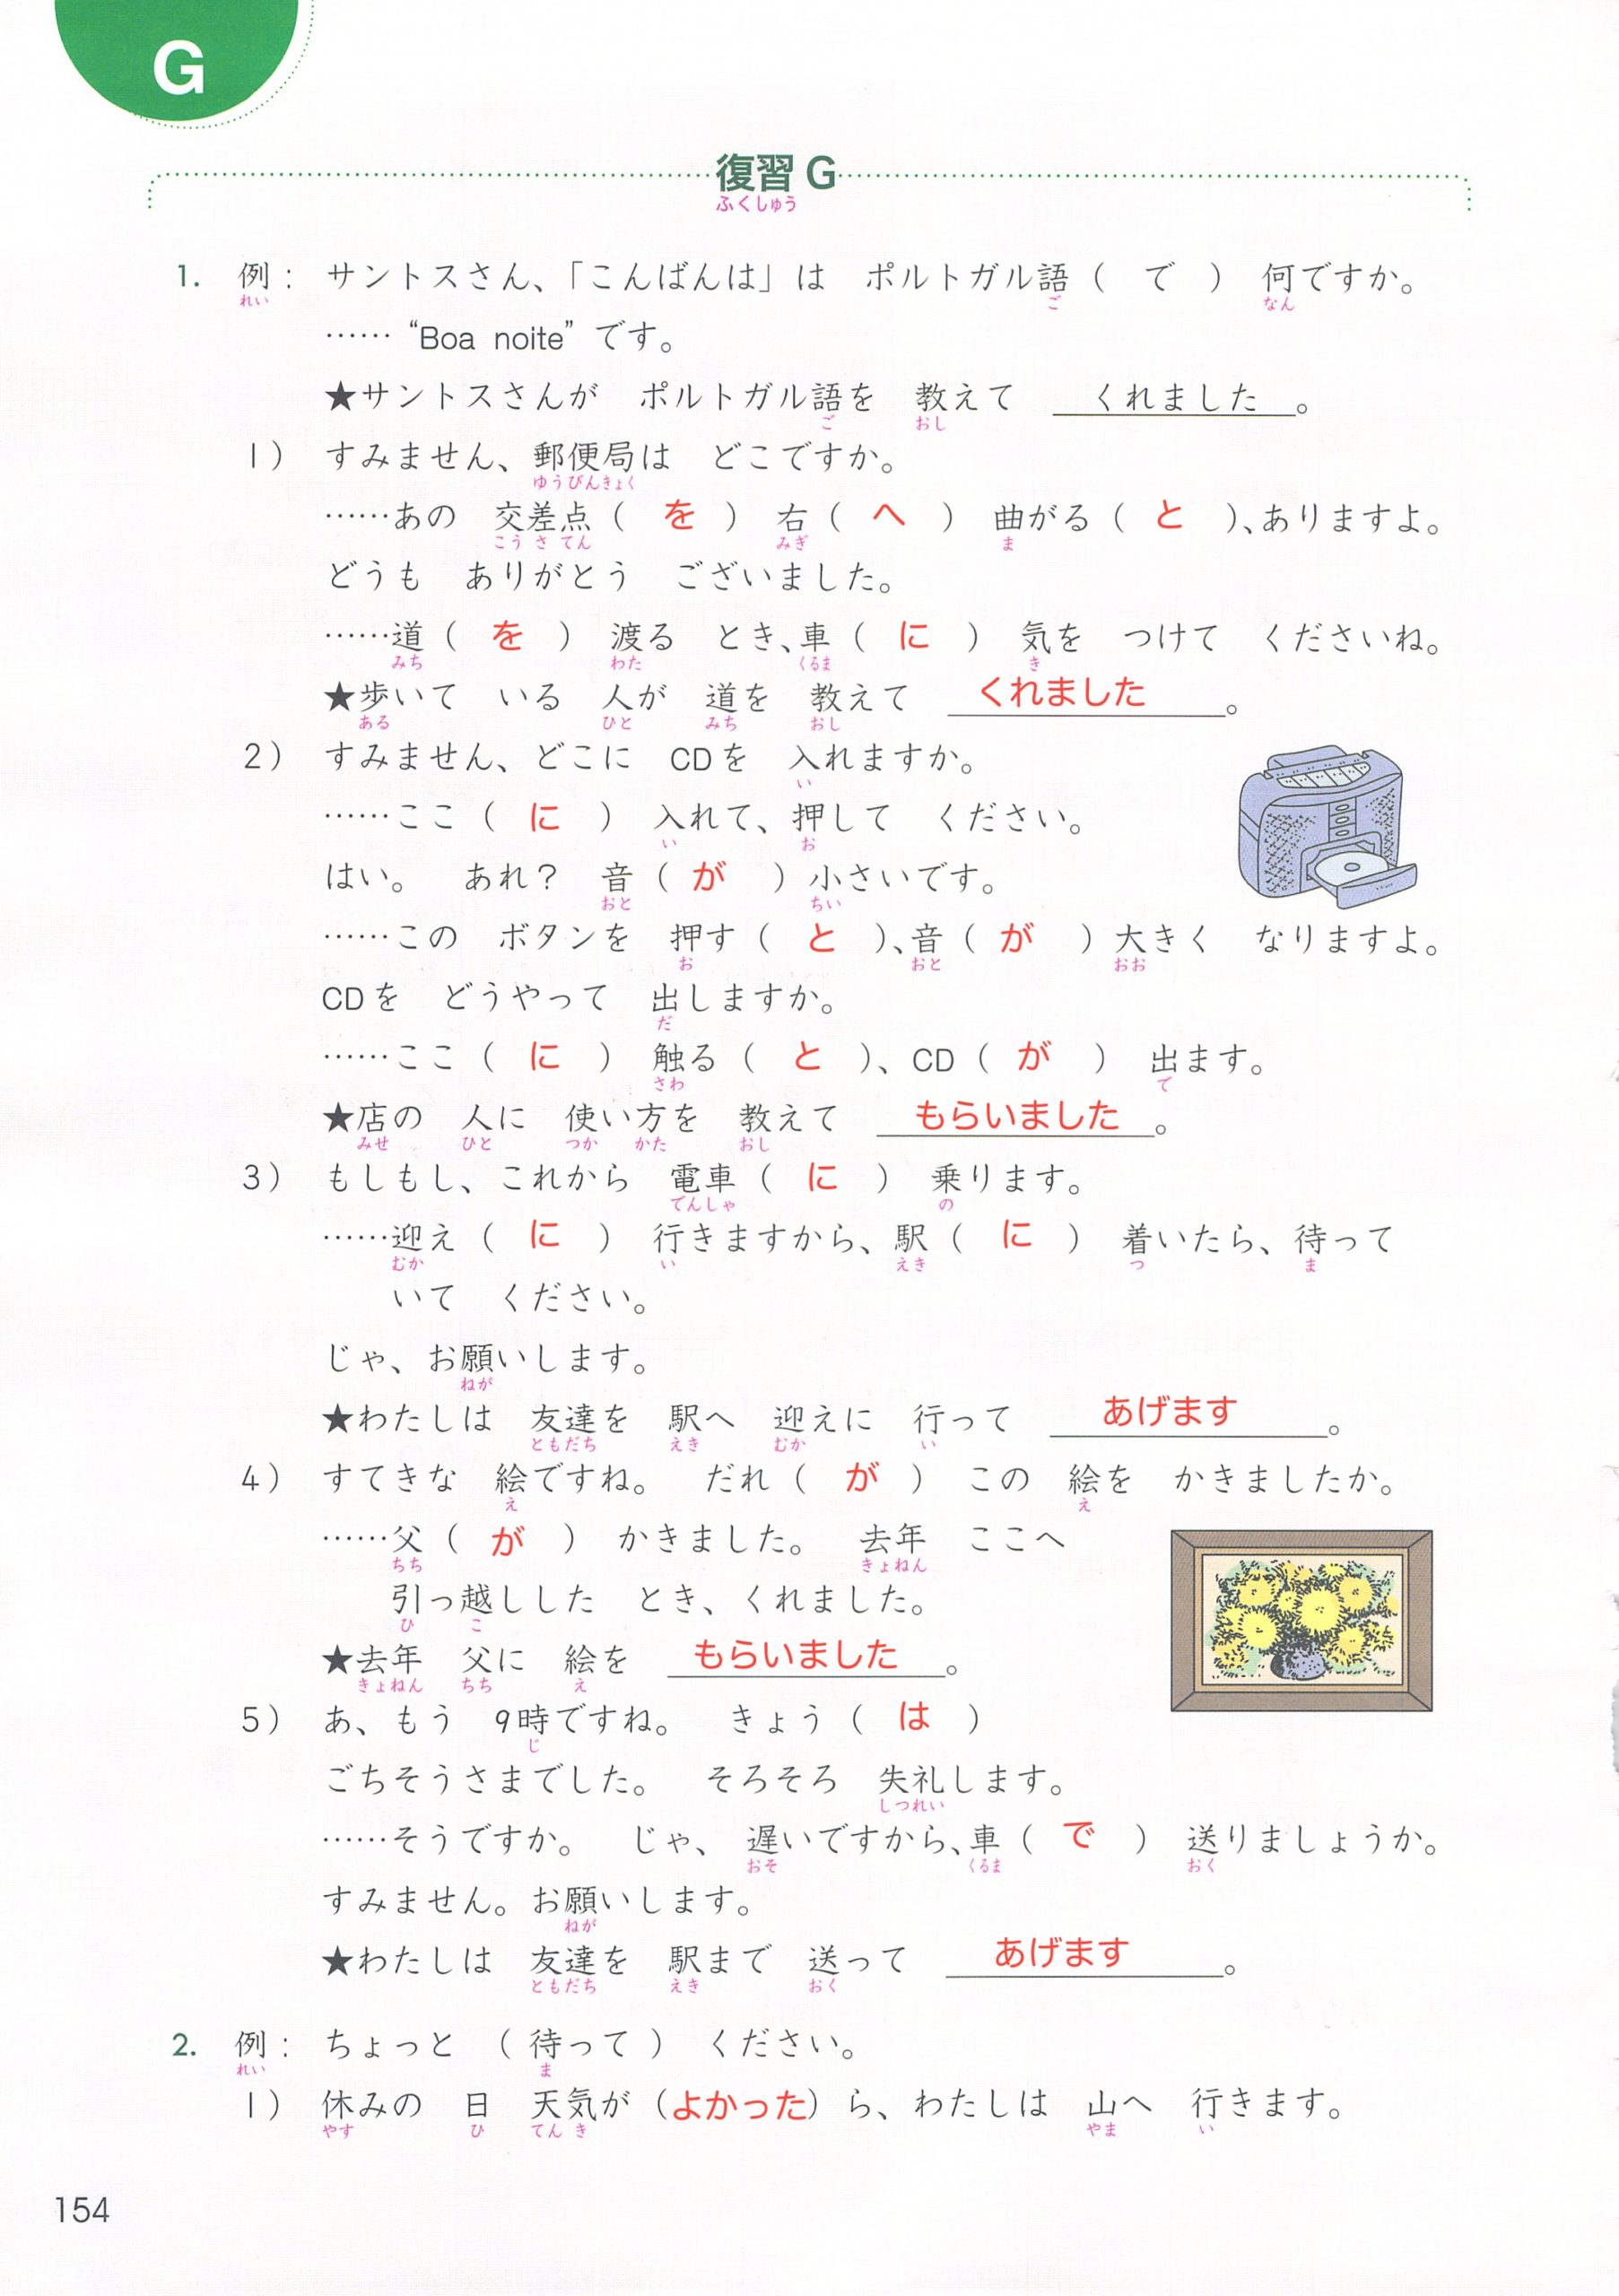 G
復習 G
ふくしゅう
1. 例： サントスさん、「こんばんは」は ポルトガル語（ で ） 何ですか。
れい ご なん
…… “Boa noite” です。
★サントスさんが ポルトガル語を 教えて くれました。
ご おし
1） すみません、郵便局は どこですか。
ゆうびんきょく
……あの 交差点（ を ） 右（ へ ） 曲がる（ と ）、ありますよ。
こうさてん みぎ ま
どうも ありがとう ございました。
……道（ を ） 渡る とき、車（ に ） 気を つけて くださいね。
みち わた くるま き
★歩いて いる 人が 道を 教えて くれました。
ある ひと みち おし
2） すみません、どこに CDを 入れますか。
い
……ここ（ に ） 入れて、押して ください。
い お
はい。 あれ？ 音（ が ）小さいです。
おと ちい
……この ボタンを 押す（ と ）、音（ が ）大きく なりますよ。
お おと おお
CDを どうやって 出しますか。
だ
……ここ（ に ） 触る（ と ）、CD（ が ） 出ます。
さわ で
★店の 人に 使い方を 教えて もらいました。
みせ ひと つか かた おし
3） もしもし、これから 電車（ に ） 乗ります。
でんしゃ の
……迎え（ に ） 行きますから、駅（ に ） 着いたら、待って
むか い えき つ ま
いて ください。
じゃ、お願いします。
ねが
★わたしは 友達を 駅へ 迎えに 行って あげます。
ともだち えき むか い
4） すてきな 絵ですね。 だれ（ が ） この 絵を かきましたか。
え え
……父（ が ） かきました。 去年 ここへ
ちち きょねん
引っ越しした とき、くれました。
ひ こ
★去年 父に 絵を もらいました。
きょねん ちち え
5） あ、もう 9時ですね。 きょう（ は ）
じ
ごちそうさまでした。 そろそろ 失礼します。
しつれい
……そうですか。 じゃ、遅いですから、車（ で ） 送りましょうか。
おそ くるま おく
すみません。お願いします。
ねが
★わたしは 友達を 駅まで 送って あげます。
ともだち えき おく
2. 例： ちょっと （ 待って ） ください。
れい ま
1） 休みの 日 天気が（よかった）ら、わたしは 山へ 行きます。
やす ひ てんき やま い
154